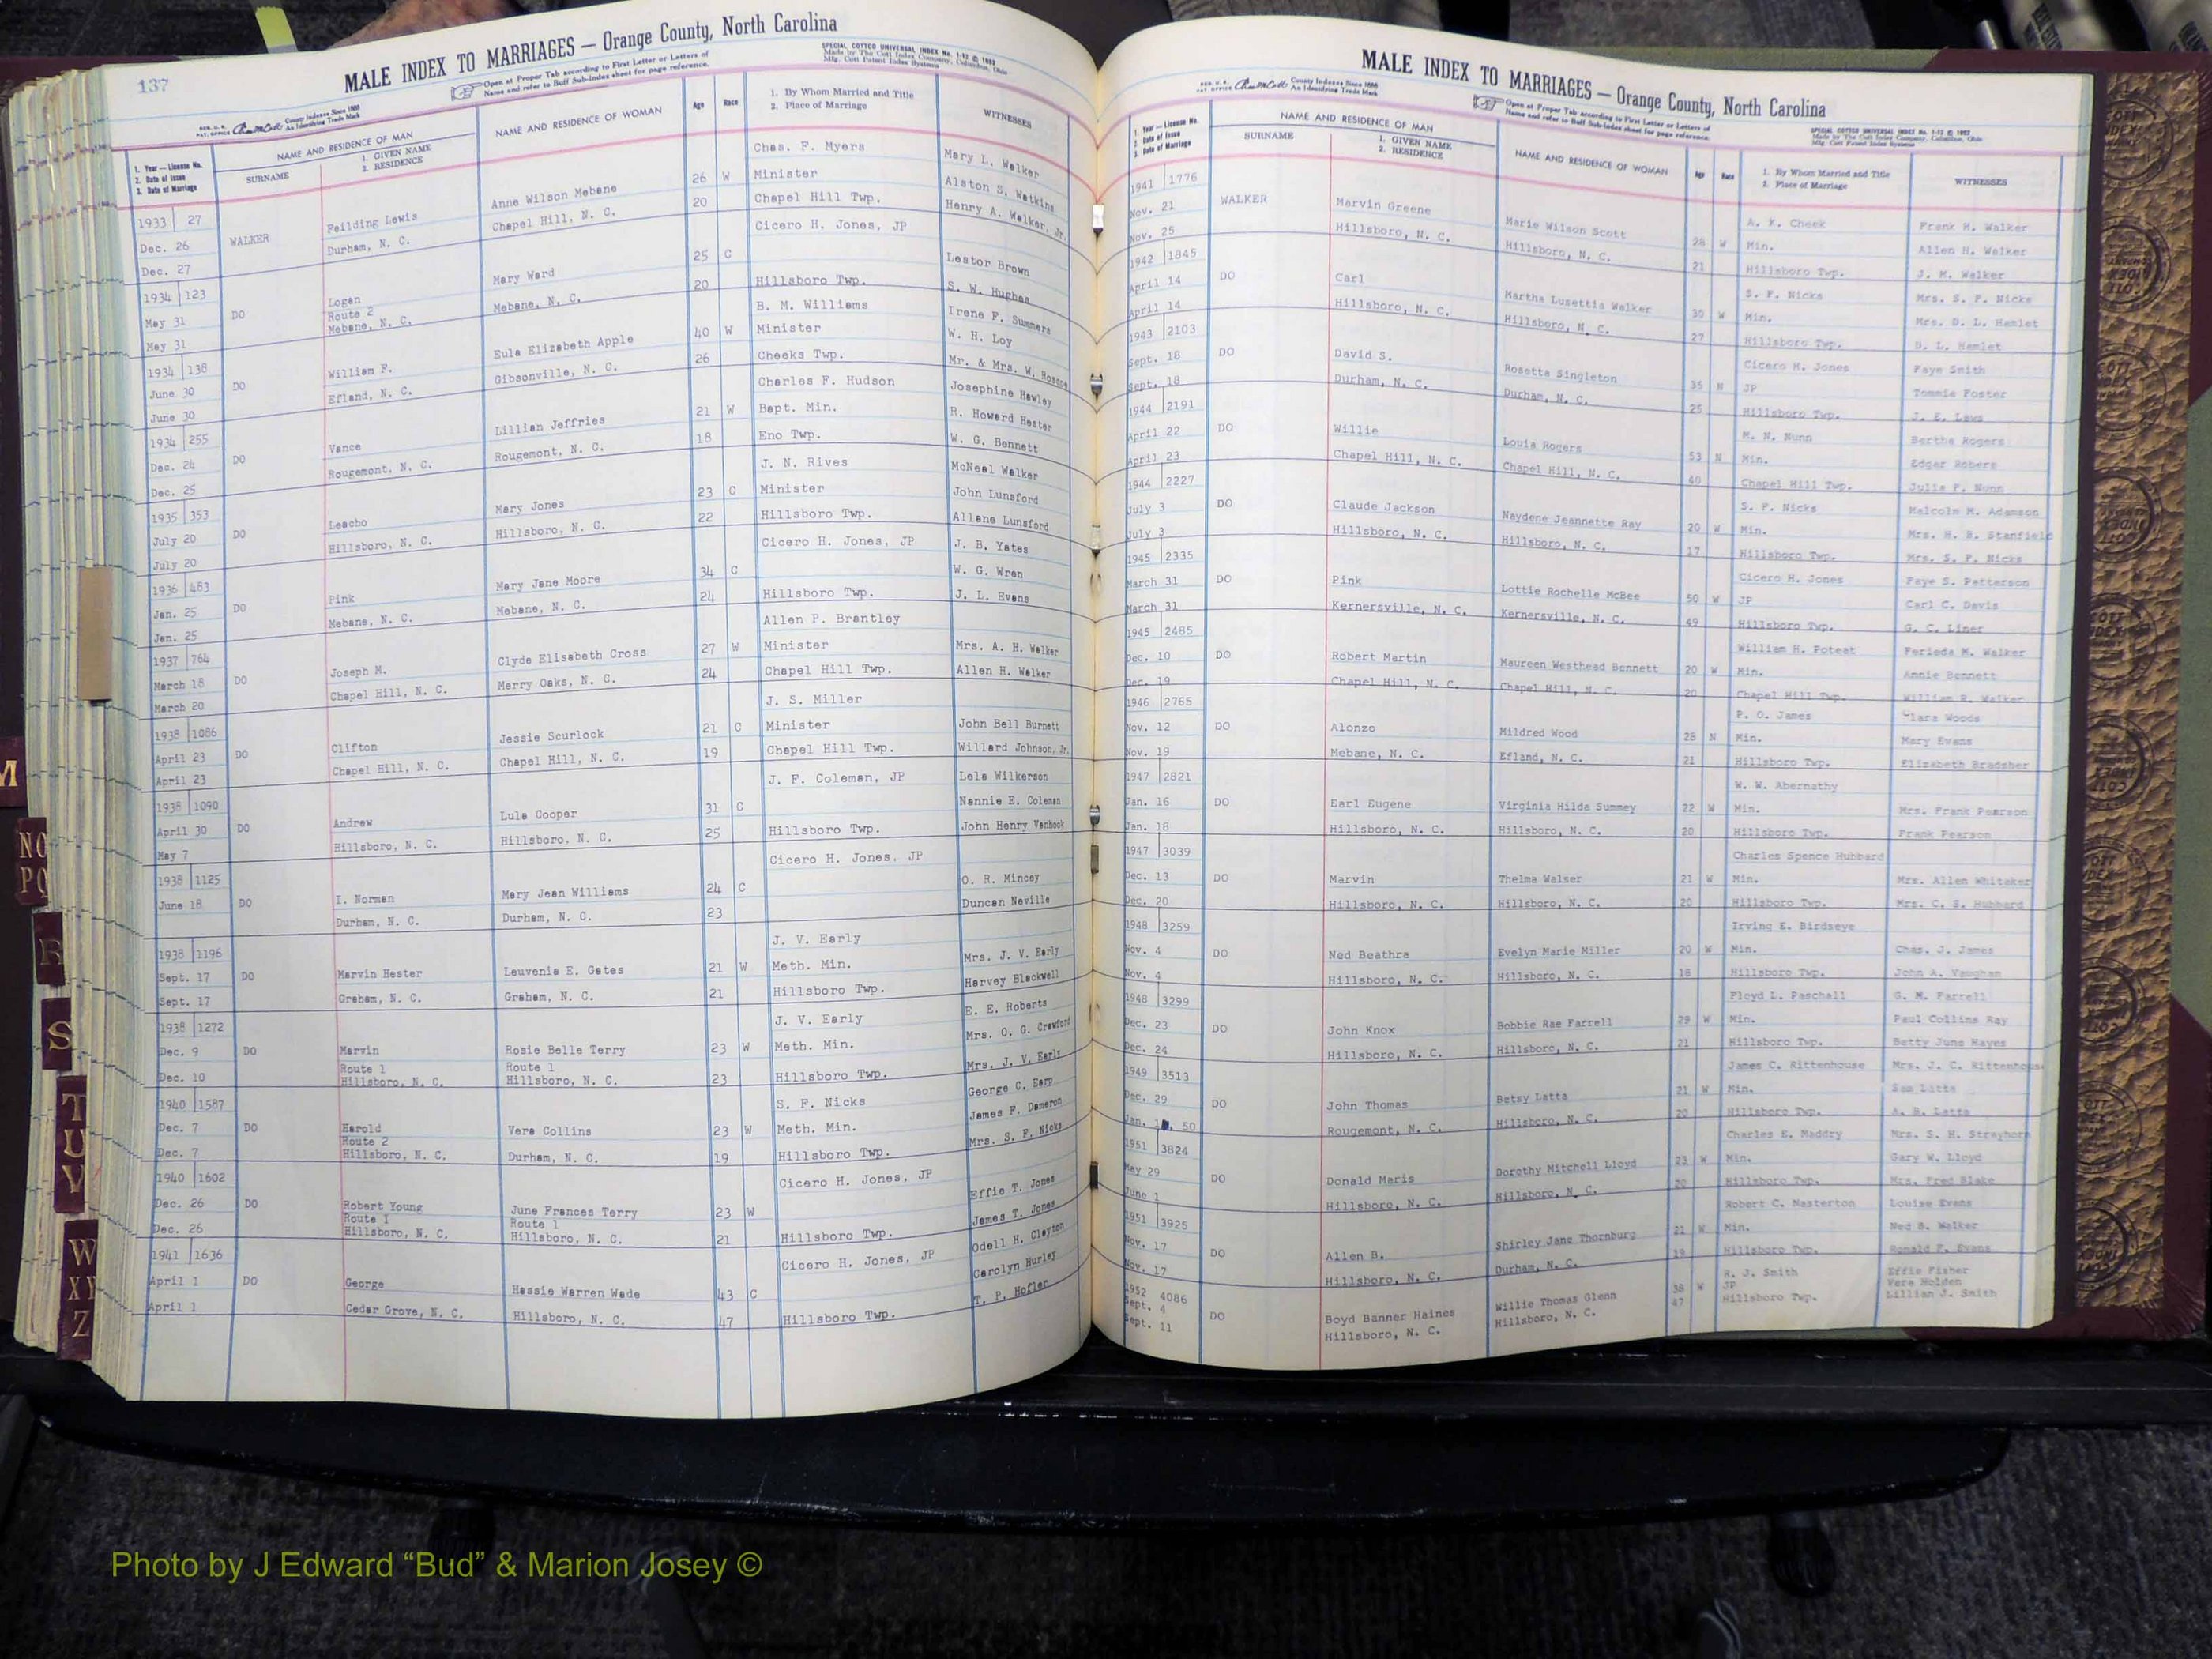 137
MALE INDEX TO MARRIAGES — Orange County, North Carolina
Open at Proper Tab according to First Letter or Letters of
Name and refer to Buff Sub-Index sheet for page reference.
SPECIAL COTTCO UNIVERSAL INDEX No. 1-12 © 1952
Made by The Cott Index Company, Columbus, Ohio
Mfg. Cott Patent Index Systems
County Indexes Since 1888
An Identifying Trade Mark
1. Year — License No.
2. Date of Issue
3. Date of Marriage
NAME AND RESIDENCE OF MAN
SURNAME
1. GIVEN NAME
2. RESIDENCE
NAME AND RESIDENCE OF WOMAN
Age
Race
1. By Whom Married and Title
2. Place of Marriage
WITNESSES
Chas. F. Myers Mary L. Walker
1933 27 Feilding Lewis Anne Wilson Mebane 26 W Minister Alston S. Watkins
Dec. 26 WALKER Durham, N. C. Chapel Hill, N. C. 20 Chapel Hill Twp. Henry A. Walker, Jr.
Dec. 27
Cicero H. Jones, JP
1934 123 Logan Mary Ward 25 C Lestor Brown
May 31 DO Route 2 Mebane, N. C. 20 Hillsboro Twp. S. W. Hughes
May 31 Mebane, N. C.
B. M. Williams Irene P. Summers
1934 138 William F. Eula Elizabeth Apple 40 W Minister W. H. Loy
June 30 DO Efland, N. C. Gibsonville, N. C. 26 Cheeks Twp. Mr. & Mrs. W. Roscoe
June 30
Charles F. Hudson Josephine Hawley
1934 255 Vance Lillian Jeffries 21 W Bapt. Min. R. Howard Hester
Dec. 24 DO Rougemont, N. C. Rougemont, N. C. 18 Eno Twp. W. G. Bennett
Dec. 25
J. N. Rives McNeal Walker
1935 353 Leacho Mary Jones 23 C Minister John Lunsford
July 20 DO Hillsboro, N. C. Hillsboro, N. C. 22 Hillsboro Twp. Allene Lunsford
July 20
Cicero H. Jones, JP J. B. Yates
1936 483 Pink Mary Jane Moore 34 C W. G. Wren
Jan. 25 DO Mebane, N. C. Mebane, N. C. 24 Hillsboro Twp. J. L. Evans
Jan. 25
Allen P. Brantley
1937 764 Joseph M. Clyde Elisabeth Cross 27 W Minister Mrs. A. H. Walker
March 18 DO Chapel Hill, N. C. Merry Oaks, N. C. 24 Chapel Hill Twp. Allen H. Walker
March 20
J. S. Miller
1938 1086 Clifton Jessie Scurlock 21 C Minister John Bell Burnett
April 23 DO Chapel Hill, N. C. Chapel Hill, N. C. 19 Chapel Hill Twp. Willard Johnson, Jr.
April 23
J. F. Coleman, JP Lela Wilkerson
1938 1090 Andrew Lula Cooper 31 C Nannie E. Coleman
April 30 DO Hillsboro, N. C. Hillsboro, N. C. 25 Hillsboro Twp. John Henry Vanhook
May 7
Cicero H. Jones, JP
1938 1125 I. Norman Mary Jean Williams 24 C O. R. Mincey
June 18 DO Durham, N. C. Durham, N. C. 23 Duncan Neville
J. V. Early
1938 1196 Marvin Hester Leuvenia E. Gates 21 W Meth. Min. Mrs. J. V. Early
Sept. 17 DO Graham, N. C. Graham, N. C. 21 Hillsboro Twp. Harvey Blackwell
Sept. 17
J. V. Early E. E. Roberts
1938 1272 Marvin Rosie Belle Terry 23 W Meth. Min. Mrs. O. G. Crawford
Dec. 9 DO Route 1 Route 1
Dec. 10 Hillsboro, N. C. Hillsboro, N. C. 23 Hillsboro Twp. Mrs. J. V. Early
S. F. Nicks George C. Earp
1940 1587 Harold Vera Collins 23 W Meth. Min. James F. Dameron
Dec. 7 DO Route 2
Dec. 7 Hillsboro, N. C. Durham, N. C. 19 Hillsboro Twp. Mrs. S. F. Nicks
Cicero H. Jones, JP
1940 1602 Robert Young June Frances Terry 23 W Effie T. Jones
Dec. 26 DO Route 1 Route 1 James T. Jones
Dec. 26 Hillsboro, N. C. Hillsboro, N. C. 21 Hillsboro Twp. Odell H. Clayton
Cicero H. Jones, JP
1941 1636 George Hassie Warren Wade 43 C Carolyn Hurley
April 1 DO Cedar Grove, N. C. Hillsboro, N. C. 47 Hillsboro Twp. T. P. Hofler
April 1
MALE INDEX TO MARRIAGES — Orange County, North Carolina
County Indexes Since 1888
An Identifying Trade Mark
Open at Proper Tab according to First Letter or Letters of
Name and refer to Buff Sub-Index sheet for page reference.
SPECIAL COTTCO UNIVERSAL INDEX No. 1-12 © 1952
Made by The Cott Index Company, Columbus, Ohio
Mfg. Cott Patent Index Systems
1. Year — License No.
2. Date of Issue
3. Date of Marriage
NAME AND RESIDENCE OF MAN
SURNAME
1. GIVEN NAME
2. RESIDENCE
NAME AND RESIDENCE OF WOMAN
Age
Race
1. By Whom Married and Title
2. Place of Marriage
WITNESSES
1941 1776 A. K. Cheek Frank H. Walker
Nov. 21 WALKER Marvin Greene Marie Wilson Scott 28 W Min. Allen H. Walker
Nov. 25 Hillsboro, N. C. Hillsboro, N. C. 21 Hillsboro Twp. J. M. Walker
1942 1845 S. F. Nicks Mrs. S. F. Nicks
April 14 DO Carl Martha Lusettia Walker 30 W Min. Mrs. D. L. Hamlet
April 14 Hillsboro, N. C. Hillsboro, N. C. 27 Hillsboro Twp. D. L. Hamlet
1943 2103 Cicero H. Jones Faye Smith
Sept. 18 DO David S. Rosetta Singleton 35 N JP Tommie Foster
Sept. 18 Durham, N. C. Durham, N. C. 25 Hillsboro Twp. J. E. Laws
1944 2191 M. N. Nunn Bertha Rogers
April 22 DO Willie Louia Rogers 53 N Min. Edgar Robers
April 23 Chapel Hill, N. C. Chapel Hill, N. C. 40 Chapel Hill Twp. Julia P. Nunn
1944 2227 S. F. Nicks Malcolm M. Adamson
July 3 DO Claude Jackson Naydene Jeannette Ray 20 W Min. Mrs. H. B. Stanfield
July 3 Hillsboro, N. C. Hillsboro, N. C. 17 Hillsboro Twp. Mrs. S. F. Nicks
1945 2335 Cicero H. Jones Faye S. Patterson
March 31 DO Pink Lottie Rochelle McBee 50 W JP Carl C. Davis
March 31 Kernersville, N. C. Kernersville, N. C. 49 Hillsboro Twp. G. C. Liner
1945 2485 William H. Poteat Ferieda M. Walker
Dec. 10 DO Robert Martin Maureen Westhead Bennett 20 W Min. Annie Bennett
Dec. 19 Chapel Hill, N. C. Chapel Hill, N. C. 20 Chapel Hill Twp. William R. Walker
1946 2765 P. O. James Clara Woods
Nov. 12 DO Alonzo Mildred Wood 28 N Min. Mary Evans
Nov. 19 Mebane, N. C. Efland, N. C. 21 Hillsboro Twp. Elizabeth Bradsher
1947 2821 W. W. Abernathy
Jan. 16 DO Earl Eugene Virginia Hilda Summey 22 W Min. Mrs. Frank Pearson
Jan. 18 Hillsboro, N. C. Hillsboro, N. C. 20 Hillsboro Twp. Frank Pearson
1947 3039 Charles Spence Hubbard
Dec. 13 DO Marvin Thelma Walser 21 W Min. Mrs. Allen Whitaker
Dec. 20 Hillsboro, N. C. Hillsboro, N. C. 20 Hillsboro Twp. Mrs. C. S. Hubbard
1948 3259 Irving E. Birdseye
Nov. 4 DO Ned Beathra Evelyn Marie Miller 20 W Min. Chas. J. James
Nov. 4 Hillsboro, N. C. Hillsboro, N. C. 18 Hillsboro Twp. John A. Vaughan
1948 3299 Floyd L. Paschall G. M. Farrell
Dec. 23 DO John Knox Bobbie Rae Farrell 29 W Min. Paul Collins Ray
Dec. 24 Hillsboro, N. C. Hillsboro, N. C. 21 Hillsboro Twp. Betty June Hayes
1949 3513 James C. Rittenhouse Mrs. J. C. Rittenhous
Dec. 29 DO John Thomas Betsy Latta 21 W Min. Sam Latta
Jan. 1, 50 Rougemont, N. C. Hillsboro, N. C. 20 Hillsboro Twp. A. B. Latta
1951 3824 Charles E. Maddry Mrs. S. H. Strayhorn
May 29 DO Donald Maris Dorothy Mitchell Lloyd 23 W Min. Gary W. Lloyd
June 1 Hillsboro, N. C. Hillsboro, N. C. 20 Hillsboro Twp. Mrs. Fred Blake
1951 3925 Robert C. Masterton Louise Evans
Nov. 17 DO Allen B. Shirley Jane Thornburg 21 W Min. Ned B. Walker
Nov. 17 Hillsboro, N. C. Durham, N. C. 19 Hillsboro Twp. Ronald F. Evans
1952 4086 R. J. Smith Effie Fisher
Sept. 4 DO Boyd Banner Haines Willie Thomas Glenn 38 W JP Vera Holden
Sept. 11 Hillsboro, N. C. Hillsboro, N. C. 47 Hillsboro Twp. Lillian J. Smith
M
NO
PQ
R
S
T
U
V
W
XY
Z
Photo by J Edward “Bud” & Marion Josey ©